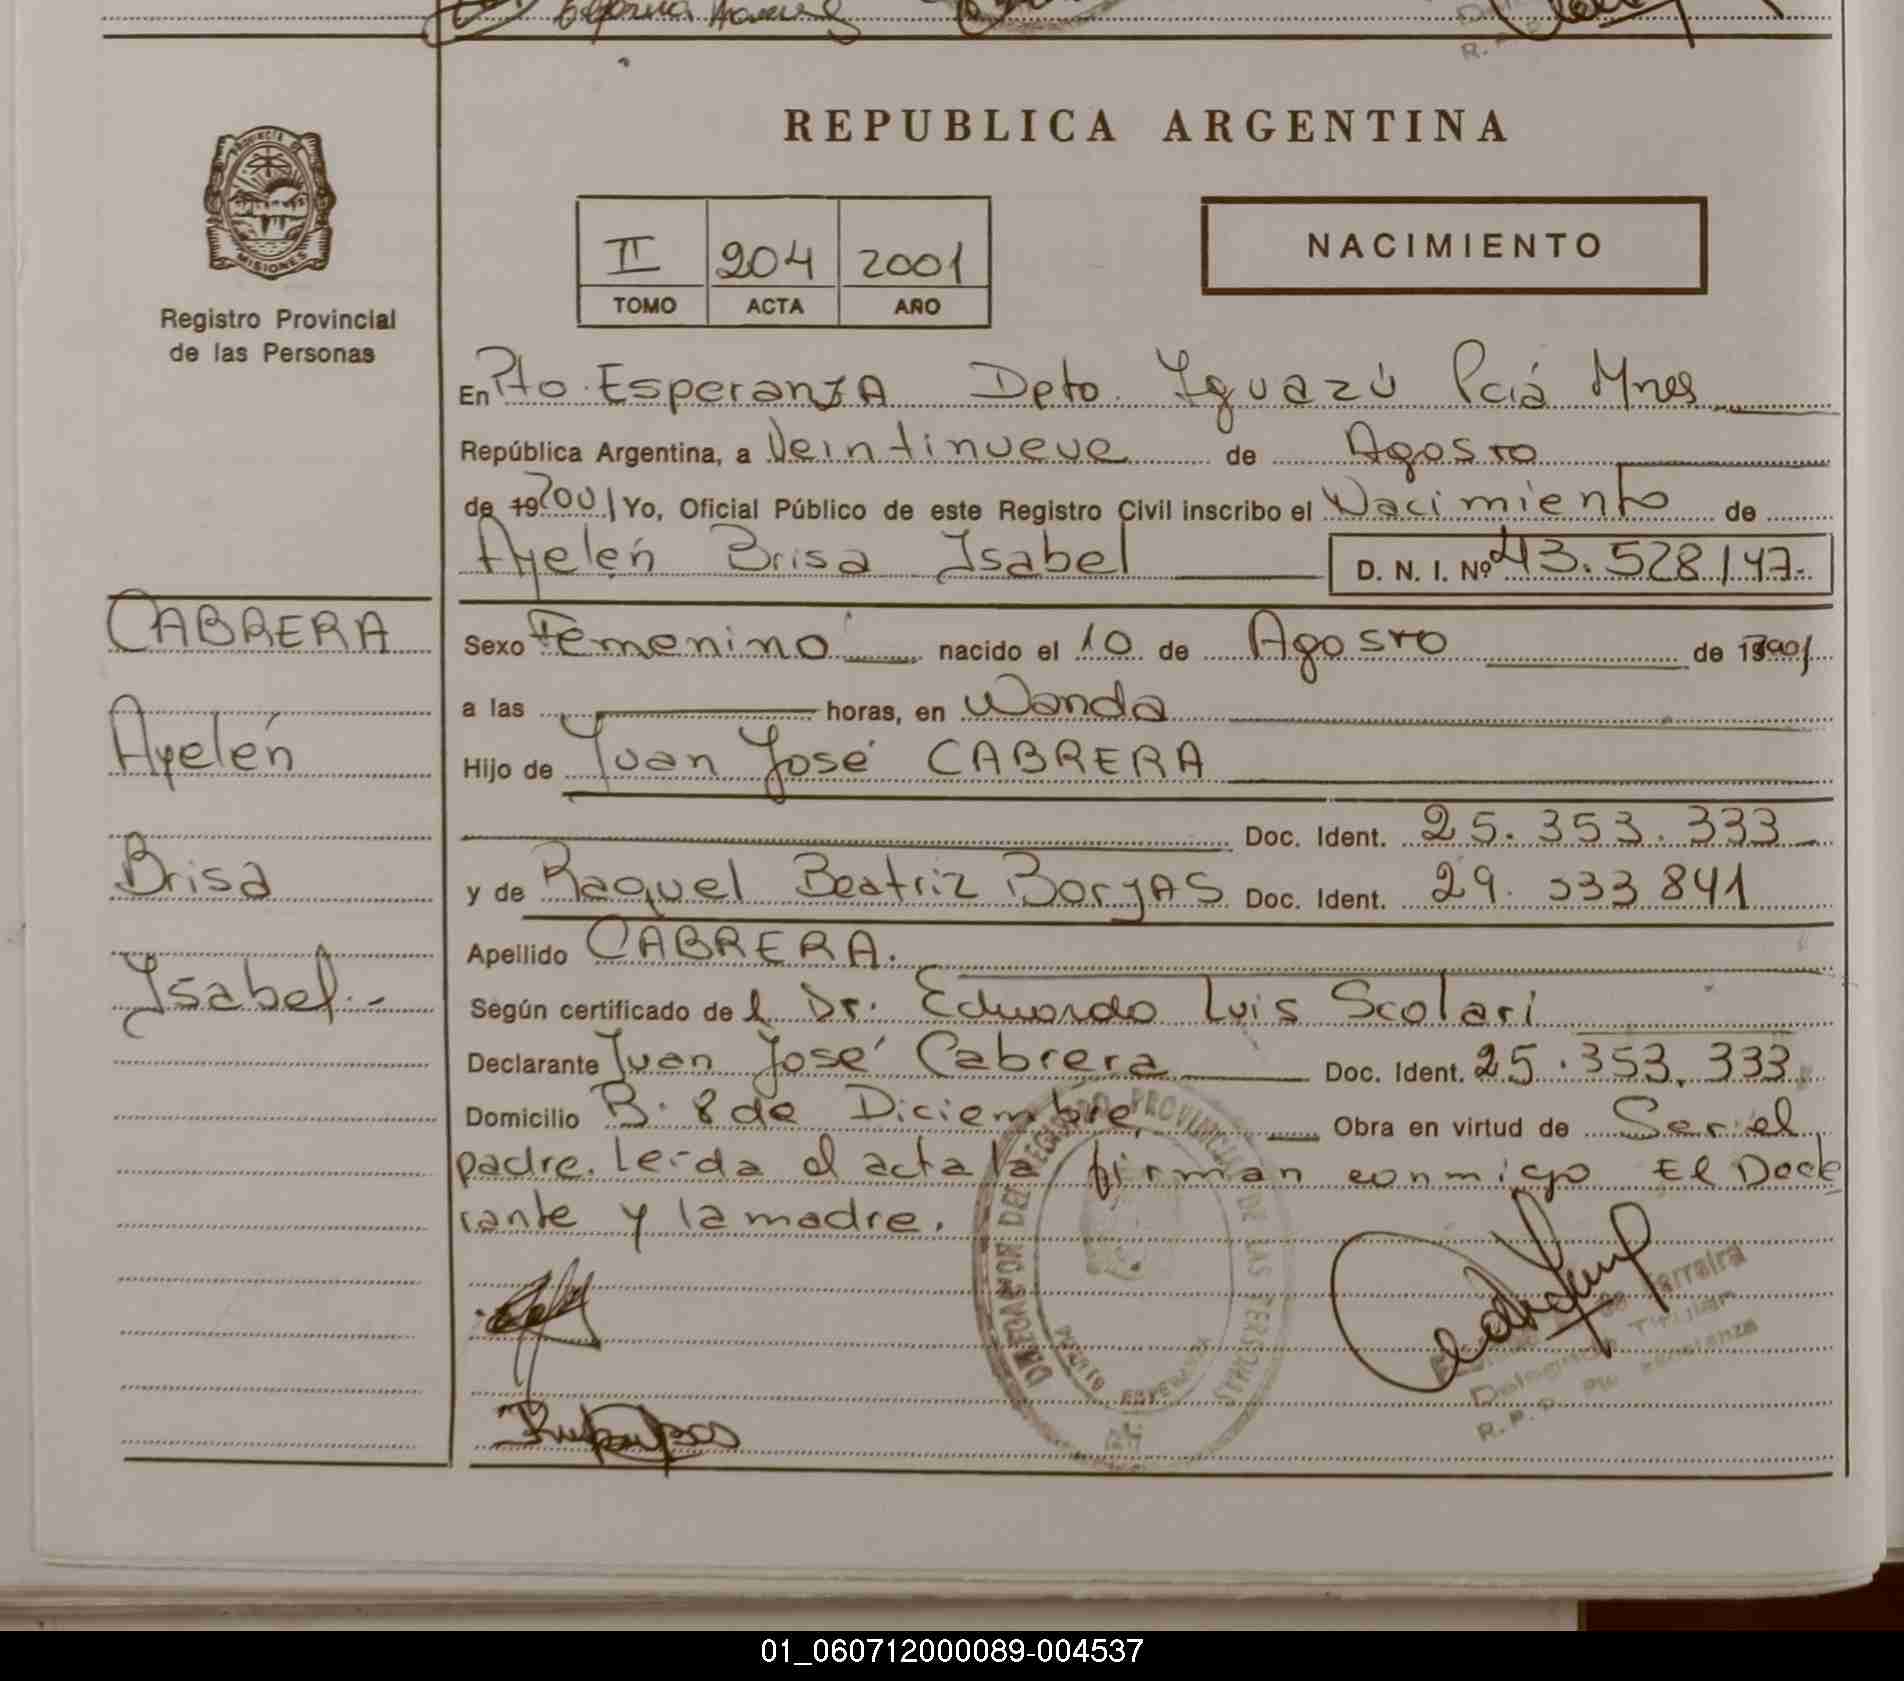 REPUBLICA ARGENTINA
PROVINCIA DE
MISIONES
Registro Provincial
de las Personas
II 204 2001
TOMO ACTA AÑO
NACIMIENTO
En Pto. EsperanzA Dpto. Iguazú Pciá Mnes
República Argentina, a Veintinueve de Agosto
de 19 2001 Yo, Oficial Público de este Registro Civil inscribo el Nacimiento de
Ayelén Brisa Isabel D. N. I. Nº 43.528147.-
CABRERA
Ayelén
Brisa
Isabel.-
Sexo Femenino nacido el 10 de Agosto de 2001
a las horas, en Wanda
Hijo de Juan José CABRERA
Doc. Ident. 25.353.333
y de Raquel Beatriz BorjAS Doc. Ident. 29.333841
Apellido CABRERA.
Según certificado de l Dr. Eduardo Luis Scolari
Declarante Juan José Cabrera Doc. Ident. 25.353.333
Domicilio B. 8 de Diciembre Obra en virtud de Ser el
padre. Leída el acta la firman conmigo El Decla
rante y la madre.
DELEGACION DEL REGISTRO PROVINCIAL DE LAS PERSONAS
PUERTO ESPERANZA
Ferreira
Delegada Titular
R. P. P. Pto Esperanza
01_060712000089-004537